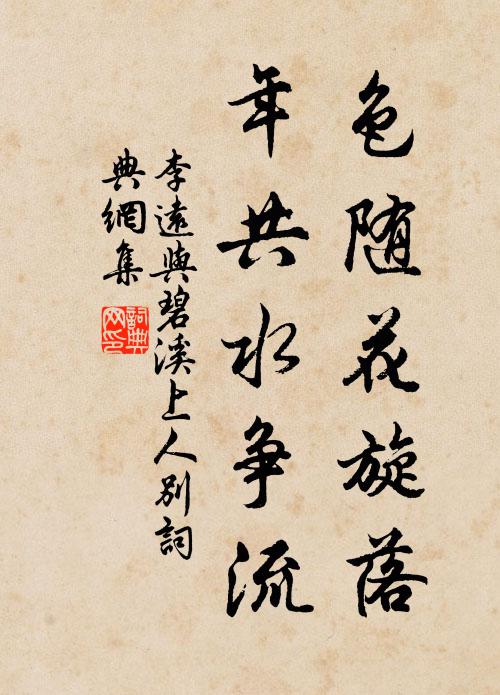 色随花旋落
年共水争流
李遠與碧溪上人别詞
典網集
詞典网印